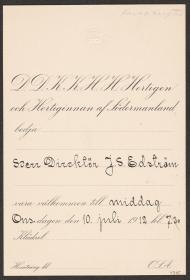 D D K K H H Hertigen
och Hertiginnan af Södermanland
bedja
Herr Direktör J. S. Edström
vara välkommen till middag
Onsdagen den 10 juli 1912 kl. 7.30
Klädsel
O.S.A.